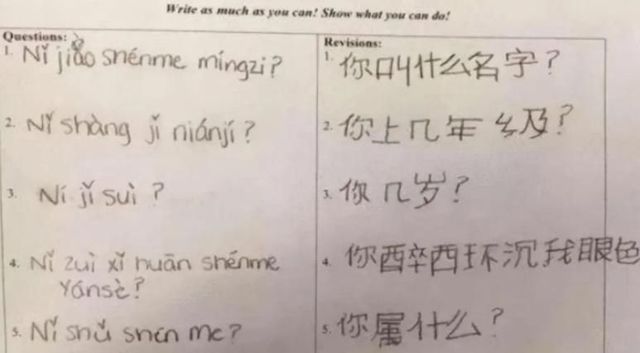 Write as much as you can! Show what you can do!
Questions:
Revisions:
1. Nǐ jiǎo shénme míngzi?
1. 你叫什么名字？
2. Nǐ shàng jǐ niánjí?
2. 你上几年级？
3. Ní jǐ suì?
3. 你几岁？
4. Nǐ zuì xǐ huān shénme
yánsè?
4. 你酉卒西环沉我眼色
5. Nǐ shǔ shén me?
5. 你属什么？